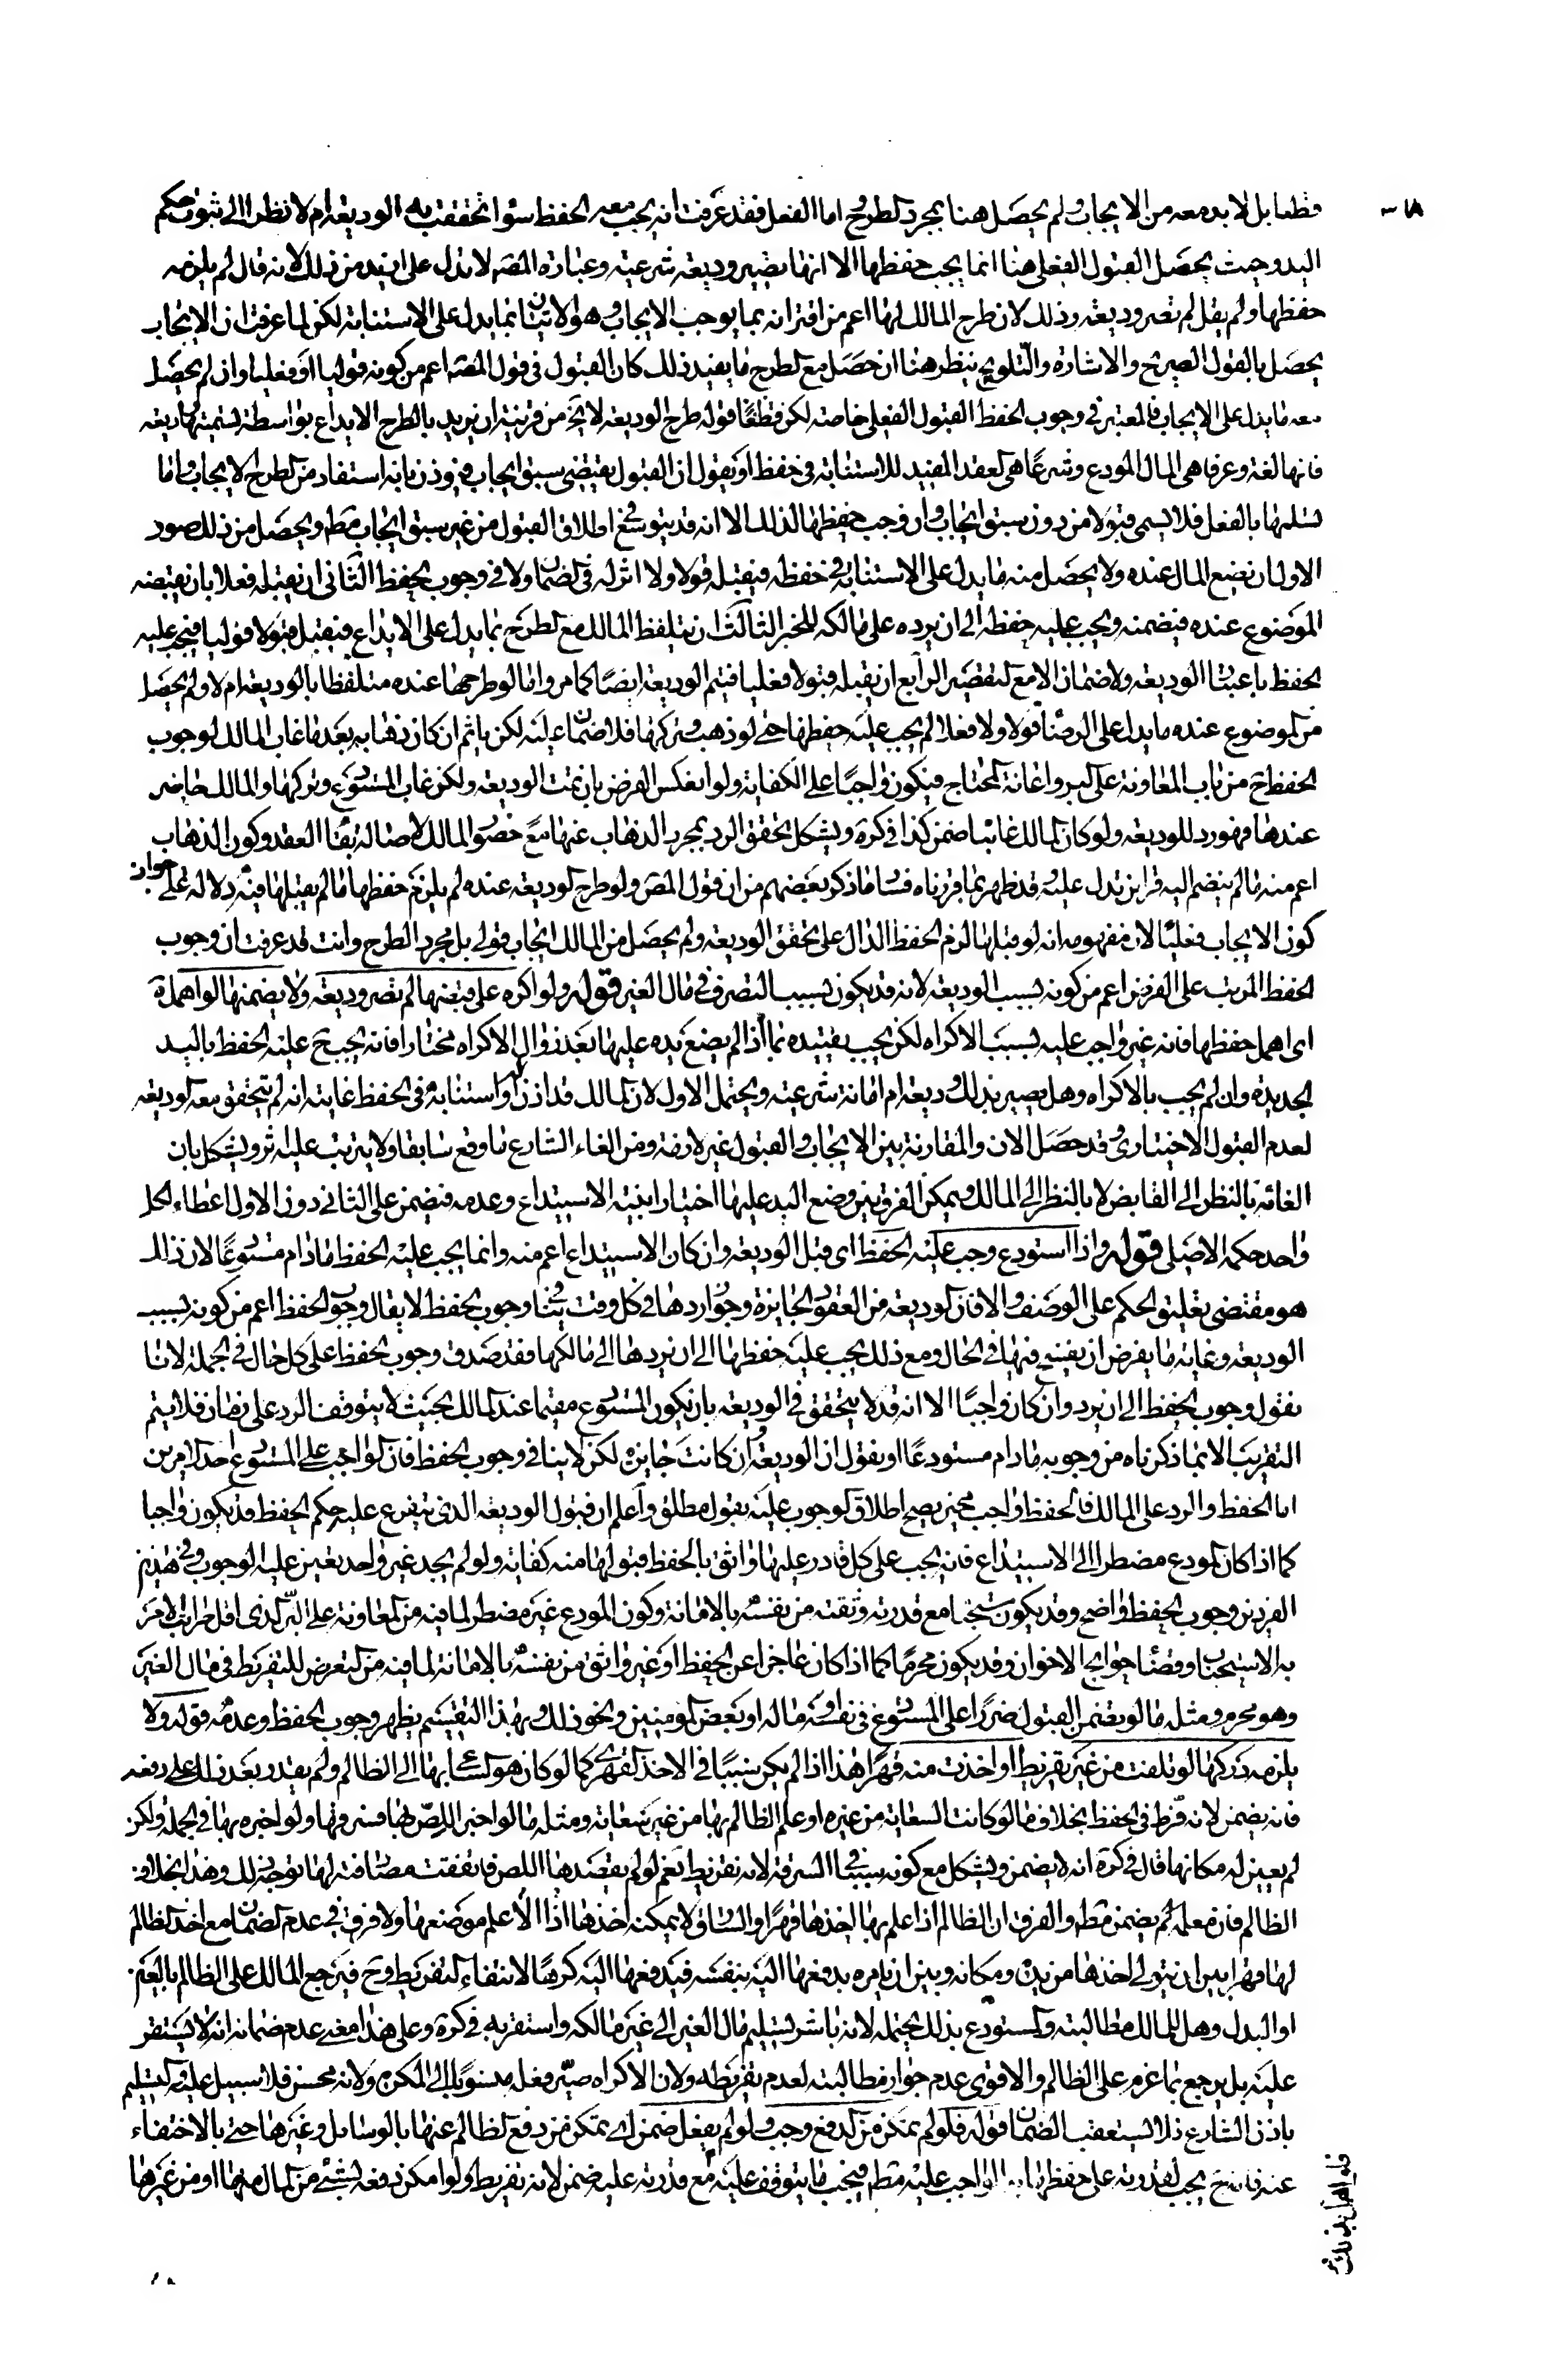 قطعا بل لا بد معه من الايجاب ولم يحصل هنا بمجرد الطرح اما الفعل فقد عرفت انه يجب معه الحفظ سواء تحققت به الوديعة ام لا نظرا الى ثبوت حكم
اليد وحيث يحصل القبول الفعلى هنا انما يجب حفظها الا انها تصير وديعة شرعية وعبارة المصّ لا تدل على ازيد من ذلك لانه قال لم يلزمه
حفظها ولم يقل لم تصر وديعة وذلك لان طرح المالك لها اعم من اقترانه بما يوجب الايجاب وهو الاتيان بما يدل على الاستنابة لكن لما عرفت ان الايجاب
يحصل بالقول الصريح والاشارة والتلويح ينظر هنا ان حصل مع الطرح ما يفيد ذلك كان القبول فى قول المصّ اعم من كونه قوليا او فعليا وان لم يحصل
معه ما يدل على الايجاب فالمعتبر فى وجوب الحفظ القبول الفعلى خاصة لكن قوله طرح الوديعة لا يخ من قرينة ان يريد بالطرح الايداع بواسطة تسميتها وديعة
فانها لغة وعرفا هى المال المودع وشرعًا هى العقد المفيد للاستنابة فى حفظ او يقول ان القبول يقتضى سبق ايجاب فيؤذن بانه استفاد من الطرح الايجاب واما
تسلمها بالفعل فلا يسمى قبولا من دون سبق ايجاب وان وجب حفظها لذلك الا انه قد يتوسع فى اطلاق القبول من غير سبق ايجاب مطم ويحصل من ذلك صور
الاولى ان يضع المال عنده ولا يحصل منه ما يدل على الاستنابة فى حفظه فيقبله قولا ولا اثر له فى الضمان ولا فى وجوب الحفظ الثانى ان يقبله فعلا بان يقبضه
الموضوع عنده فيضمنه ويجب عليه حفظه الى ان يرده على مالكه للخبر الثالث ان يتلفظ المالك مع الطرح بما يدل على الايداع فيقبل قبولا قوليا فيجب عليه
الحفظ باعتبار الوديعة ولا ضمان الا مع التقصير الرابع ان يقبله قبولا فعليا فيتم الوديعة ايضًا كما مر واما لو طرحها عنده متلفظا بالوديعة ام لا ولم يحصل
من الموضوع عنده ما يدل على الرضا قولا ولا فعلا لم يجب عليه حفظها حتى لو ذهب وتركها فلا ضمان عليه لكن ياثم ان كان ذهابه بعد ما غاب المالك لوجوب
الحفظ ح من باب المعاونة على البر واعانة المحتاج فيكون واجبًا على الكفاية ولو انعكس الفرض بان تمت الوديعة ولكن غاب المستودع وتركها والمالك حاضر
عندها فهو رد للوديعة ولو كان المالك غائبا ضمن كذا فى كرة ويشكل تحقق الرد بمجرد الذهاب عنها مع حضور المالك لاصالة بقاء العقد وكون الذهاب
اعم منه ما لم ينضم اليه قراين تدل عليه وقد ظهر بما قررناه فساد ما ذكر بعضهم من ان قول المصّ ولو طرح الوديعة عنده لم يلزم حفظها ما لم يقبلها فيه دلالة على جواز
كون الايجاب فعليًا لان مفهومه انه لو قبلها لزم الحفظ الدال على تحقق الوديعة ولم يحصل من المالك ايجاب قولى بل مجرد الطرح وانت قد عرفت ان وجوب
الحفظ المرتب على الفرض اعم من كونه بسبب الوديعة لانه قد يكون بسبب التصرف فى مال الغير قوله ولو اكره على قبضها لم تصر وديعة ولا يضمنها لو اهملها
اى اهمل حفظها فانه غير واجب عليه بسبب الاكراه لكن يجب تقييده بما اذا لم يضع يده عليها بعد زوال الاكراه مختارا فانه يجب ح عليه الحفظ باليد
الجديدة وان لم يجب بالاكراه وهل يصير بذلك وديعة ام امانة شرعية ويحتمل الاول لان المالك قد اذن له واستنابه فى الحفظ غايته انه لم يتحقق معه الوديعة
لعدم القبول الاختيارى وقد حصل الان والمقارنة بين الايجاب والقبول غير لازمة ومن الغاء الشارع ما وقع سابقا ولا يترتب عليه اثر ويشكل بان
الغائه بالنظر الى القابض لا بالنظر الى المالك ويمكن الفرق بين وضع اليد عليها اختيارا بنية الاستيداع وعدمه فيضمن على الثانى دون الاول اعطاء لكل
واحد حكمه الاصلى قوله واذا استودع وجب عليه الحفظ اى قبل الوديعة وان كان الاستيداع اعم منه وانما يجب عليه الحفظ ما دام مستودعًا لان ذلك
هو مقتضى تعليق الحكم على الوصف والا فان الوديعة من العقود الجايزة وجواز ردها فى كل وقت ينافى وجوب الحفظ لا يقال وجوب الحفظ اعم من كونه بسبب
الوديعة وغايته ما يفرض ان يفسخ فيها فى الحال ومع ذلك يجب عليه حفظها الى ان يردها الى مالكها فقد صدق وجوب الحفظ على كل حال فى الجملة لانا
نقول وجوب الحفظ الى ان يرد وان كان واجبًا الا انه قد لا يتحقق فى الوديعة بان يكون المستودع مقيما عند المالك بحيث لا يتوقف الرد على زمان فلا يتم
التقريب الا بما ذكرناه من وجوبه ما دام مستودعًا او نقول ان الوديعة وان كانت جايزة لكن لا ينافى وجوب الحفظ فان الواجب على المستودع احد امرين
اما الحفظ والرد على المالك فالحفظ واجب مخير يصح اطلاق الوجوب عليه بقول مطلق واعلم ان قبول الوديعة الذى يتفرع عليه حكم الحفظ قد يكون واجبا
كما اذا كان المودع مضطرا الى الاستيداع فانه يجب على كل قادر عليها واثق بالحفظ قبولها منه كفاية ولو لم يجد غير واحد تعين عليه الوجوب وفى هذين
الفردين وجوب الحفظ واضح وقد يكون مستحبا مع قدرته وثقته من نفسه بالامانة وكون المودع غير مضطر لما فيه من المعاونة على البرّ الذى اقل مراتب الامر
به الاستحباب وقضاء حوايج الاخوان وقد يكون محرمًا كما اذا كان عاجزا عن الحفظ او غير واثق من نفسه بالامانة لما فيه من التعرض للتفريط فى مال الغير
وهو محرم ومثله ما لو تضمن القبول ضررا على المستودع فى نفسه او ماله او بعض المومنين ونحو ذلك وبهذا التقسيم يظهر وجوب الحفظ وعدمه قوله ولا
يلزمه دركها لو تلفت من غير تفريط او اخذت منه قهرًا هذا اذا لم يكن سببًا فى الاخذ القهرى كما لو كان هو الساعى بها الى الظالم ولم يقدر بعد ذلك على دفعه
فانه يضمن لانه فرّط فى الحفظ بخلاف ما لو كانت السعاية من غيره او علم الظالم بها من غير سعاية ومثله ما لو اخبر اللصّ بها فسرقها ولو اخبره بها فى الجملة ولكن
لم يعين له مكانها قال فى كرة انه لا يضمن ويشكل مع كونه سببًا فى السرقة لانه تفريط نعم لو لم يقصدها اللص فاتفقت مصادفته لها توجه ذلك وهذا بخلاف
الظالم فان معلمه يضمن مطم والفرق ان الظالم اذا علم بها اخذها قهرًا والسارق لا يمكنه اخذها الا اذا علم موضعها ولا فرق فى عدم الضمان مع اخذ الظالم
لها قهرا بين ان يتولى اخذها من يده ومكانه وبين ان يامره بدفعها اليه بنفسه فيدفعها اليه كرهًا لانتفاء التفريط وح فيرجع المالك على الظالم بالعين
او البدل وهل للمالك مطالبة المستودع بذلك يحتمله لانه باشر تسليم مال الغير الى غير مالكه واستقر به فى كرة وعلى هذا معنى عدم ضمانه انه لا يستقر
عليه بل يرجع بما غرم على الظالم والاقوى عدم جواز مطالبته لعدم تفريطه ولان الاكراه صيّر فعله منسوبًا الى المكره ولانه محسن فلا سبيل عليه والتسليم
باذن الشارع فلا يستعقب الضمان قوله فلو لم تمكن من الدفع وجب ولو لم يفعل ضمن اى تمكن من دفع الظالم عنها بالوسايل وغيرها حتى بالاختفاء
عنه فانه ح يجب لقدرته على حفظها الواجب عليه مطم فيجب ما يتوقف عليه مع قدرته عليه ضمن لانه تفريط ولو امكن دفعه بشىء من المال منها او من غيرها